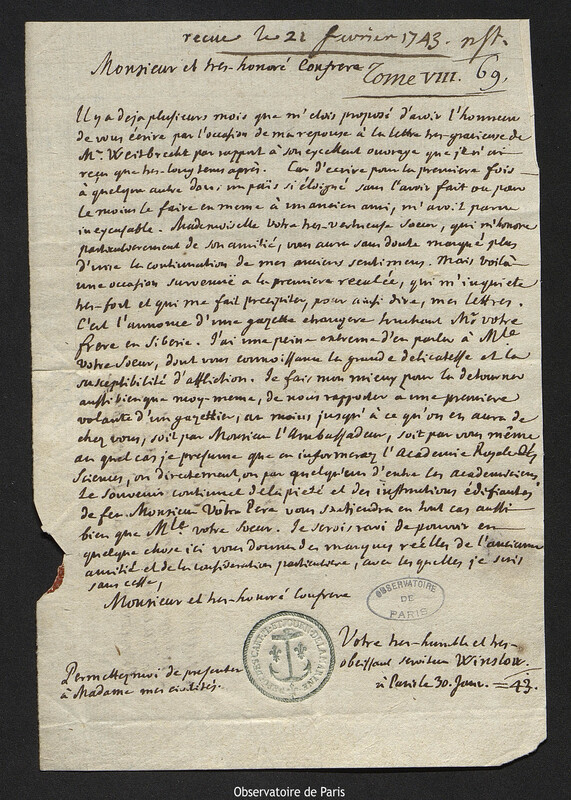 recue le 21 fevrier 1743. nst.
Monsieur et tres-honoré Confrere Tome VIII. 69.
Il y a deja plusieurs mois que m'etois proposé d'avoir l'honneur
de vous écrire par l'occasion de ma reponse à la lettre tres-gratieuse de
Mr. Weitbrecht par rapport à son excellent ouvrage que je n'ai
reçu que tres-longtems après. Car d'ecrire pour la premiere fois
à quelque autre dans un païs si éloigné sans l'avoir fait ou pour
le moins le faire en meme à un ancien ami, m'avoit paru
inexcusable. Mademoiselle votre tres-vertueuse Soeur, qui m'honore
particulierement de son amitié, vous aura sans doute marqué plus
d'une la continuation de mes anciens sentimens. Mais voilà
une occasion survenüe a la premiere reculée, qui m'inquiete
tres-fort et qui me fait precipiter, pour ainsi dire, mes lettres.
C'est l'annonce d'une gazette etrangere touchant Mr. votre
frere en Siberie. J'ai une peine extreme d'en parler à Mlle
votre Soeur, dont vous connoissance la grande delicatesse et la
susceptibilité d'affliction. Je fais mon mieux pour la detourner
aussi bien que moy-meme, de nous rapporter a une premiere
volante d'un gazettier, au moins jusqu'à ce qu'on en aura de
chez vous, soit par Monsieur l'Ambassadeur, soit par vous même
au quel cas je presume que en informerez l'Academie Royale des
Sciences, ou directement, ou par quelqu'un d'entre les academiciens.
Le souvenir continuel de la pieté et des instructions édifiantes
de feu Monsieur Votre Pere vous soutiendra en tout cas aussi
bien que Mlle votre Soeur. Je serois ravi de pouvoir en
quelque chose ici vous donner des marques réelles de l'ancienne
amitié et de la consideration particuliere, avec les quelles je suis
sans cesse,
Monsieur et tres-honoré Confrere
OBSERVATOIRE
DE
PARIS
Votre tres-humble et tres-
obeissant serviteur Winslow.
à Paris le 30. Janv. 43.
Permettez moi de presenter
à Madame mes civilités.
Observatoire de Paris